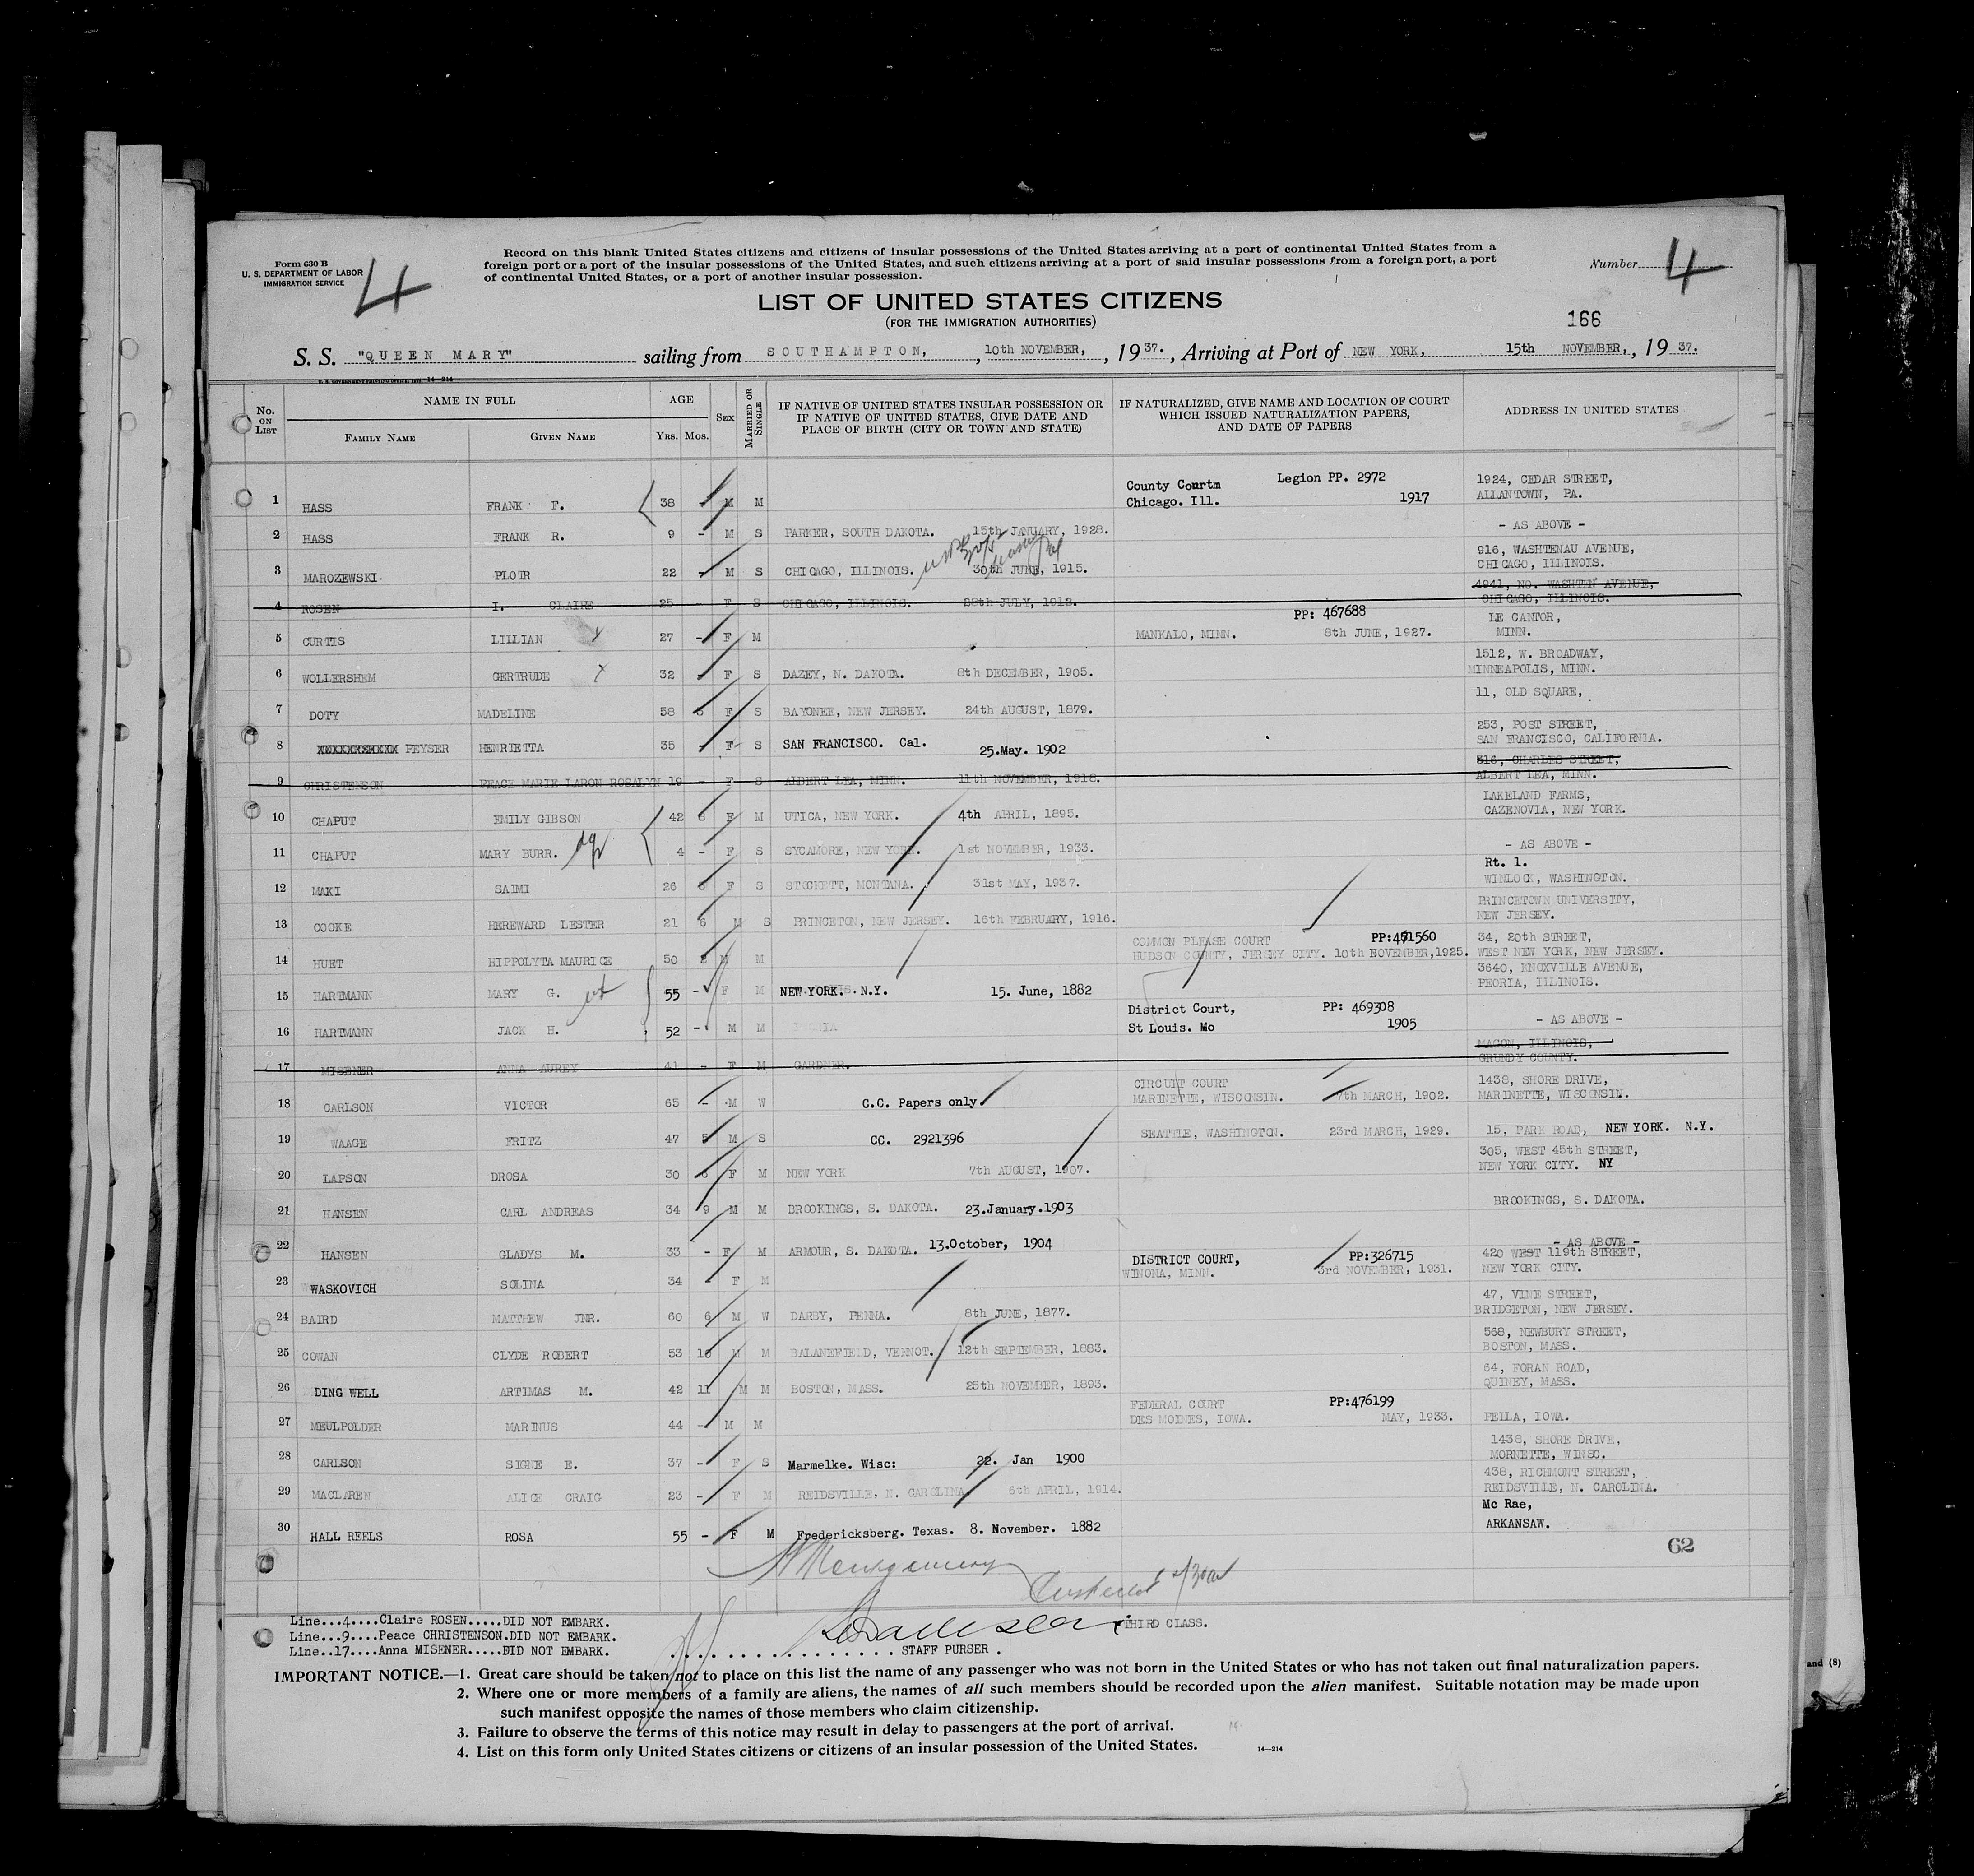 Form 630 B
U. S. DEPARTMENT OF LABOR
IMMIGRATION SERVICE
4
Record on this blank United States citizens and citizens of insular possessions of the United States arriving at a port of continental United States from a
foreign port or a port of the insular possessions of the United States, and such citizens arriving at a port of said insular possessions from a foreign port, a port
of continental United States, or a port of another insular possession.
Number 4
LIST OF UNITED STATES CITIZENS
(FOR THE IMMIGRATION AUTHORITIES)
166
S. S. "QUEEN MARY" sailing from SOUTHAMPTON, , 10th NOVEMBER, , 19 37. , Arriving at Port of NEW YORK, 15th NOVEMBER, , 19 37.
No. ON LIST
NAME IN FULL
FAMILY NAME GIVEN NAME
AGE
Yrs. Mos.
SEX
MARRIED OR SINGLE
IF NATIVE OF UNITED STATES INSULAR POSSESSION OR
IF NATIVE OF UNITED STATES, GIVE DATE AND
PLACE OF BIRTH (CITY OR TOWN AND STATE)
IF NATURALIZED, GIVE NAME AND LOCATION OF COURT
WHICH ISSUED NATURALIZATION PAPERS,
AND DATE OF PAPERS
ADDRESS IN UNITED STATES
County Courtm Legion PP. 2972 1924, CEDAR STREET,
1 HASS FRANK F. 38 - M M Chicago. Ill. 1917 ALLANTOWN, PA.
2 HASS FRANK R. 9 - M S PARKER, SOUTH DAKOTA. 15th JANUARY, 1928. - AS ABOVE -
916, WASHTENAU AVENUE,
3 MAROZEWSKI PLOTR 22 - M S CHICAGO, ILLINOIS. 30th JUNE, 1915. CHICAGO, ILLINOIS.
4941, NO. WASHTEN AVENUE,
4 ROSEN I. CLAIRE 25 - F S CHICAGO, ILLINOIS. 28th JULY, 1912. CHICAGO, ILLINOIS.
PP: 467688 LE CANTOR,
5 CURTIS LILLIAN 27 - F M MANKALO, MINN. 8th JUNE, 1927. MINN.
1512, W. BROADWAY,
6 WOLLERSHEM GERTRUDE 32 - F S DAZEY, N. DAKOTA. 8th DECEMBER, 1905. MINNEAPOLIS, MINN.
7 DOTY MADELINE 58 F S BAYONEE, NEW JERSEY. 24th AUGUST, 1879. 11, OLD SQUARE,
253, POST STREET,
8 PEYSER HENRIETTA 35 - F S SAN FRANCISCO. Cal. 25.May. 1902 SAN FRANCISCO, CALIFORNIA.
516, CHARLES STREET,
9 CHRISTENSON PEACE MARIE LARON ROSALYN 19 - F S ALBERT LEA, MINN. 11th NOVEMBER, 1918. ALBERT LEA, MINN.
LAKELAND FARMS,
10 CHAPUT EMILY GIBSON 42 F M UTICA, NEW YORK. 4th APRIL, 1895. CAZENOVIA, NEW YORK.
11 CHAPUT MARY BURR. 4 - F S SYCAMORE, NEW YORK. 1st NOVEMBER, 1933. - AS ABOVE -
Rt. 1.
12 MAKI SAIMI 26 F S STOCKETT, MONTANA. 31st MAY, 1937. WINLOCK, WASHINGTON.
PRINCETOWN UNIVERSITY,
13 COOKE HEREWARD LESTER 21 6 M S PRINCETON, NEW JERSEY. 16th FEBRUARY, 1916. NEW JERSEY.
COMMON PLEASE COURT 34, 20th STREET,
14 HUET HIPPOLYTA MAURICE 50 2 M M HUDSON COUNTY, JERSEY CITY. 10th BOVEMBER,1925. WEST NEW YORK, NEW JERSEY.
3640, KNOXVILLE AVENUE,
15 HARTMANN MARY G. 55 - F M NEW YORK. N.Y. 15. June, 1882 PEORIA, ILLINOIS.
District Court, PP: 469308
16 HARTMANN JACK H. 52 - M M St Louis. Mo 1905 - AS ABOVE -
MACON, ILLINOIS,
17 MISENER ANNA AUREY 41 - F M GARDNER. GRUNDY COUNTY.
CIRCUIT COURT 1438, SHORE DRIVE,
18 CARLSON VICTOR 65 - M W C.C. Papers only MARINETTE, WISCONSIN. 7th MARCH, 1902. MARINETTE, WISCONSIN.
19 WAAGE FRITZ 47 5 M S CC. 2921396 SEATTLE, WASHINGTON. 23rd MARCH, 1929. 15, PARK ROAD, NEW YORK. N.Y.
305, WEST 45th STREET,
20 LAPSON DROSA 30 F M NEW YORK 7th AUGUST, 1907. NEW YORK CITY. NY
21 HANSEN CARL ANDREAS 34 9 M M BROOKINGS, S. DAKOTA. 23.January.1903 BROOKINGS, S. DAKOTA.
22 HANSEN GLADYS M. 33 - F M ARMOUR, S. DAKOTA. 13.October, 1904 - AS ABOVE -
DISTRICT COURT, PP:326715 420 WEST 119th STREET,
23 WASKOVICH SOLINA 34 F M WINONA, MINN. 3rd NOVEMBER, 1931. NEW YORK CITY.
47, VINE STREET,
24 BAIRD MATTHEW JNR. 60 6 M W DARBY, PENNA. 8th JUNE, 1877. BRIDGETON, NEW JERSEY.
568, NEWBURY STREET,
25 COWAN CLYDE ROBERT 53 10 M M BALANEFIELD, VENNOT. 12th SEPTEMBER, 1883. BOSTON, MASS.
64, FORAN ROAD,
26 DING WELL ARTIMAS M. 42 11 M M BOSTON, MASS. 25th NOVEMBER, 1893. QUINEY, MASS.
FEDERAL COURT PP:476199
27 MEULPOLDER MARINUS 44 - M M DES MOINES, IOWA. MAY, 1933. PELLA, IOWA.
1438, SHORE DRIVE,
28 CARLSON SIGNE E. 37 - F S Marmelke. Wisc: 22. Jan 1900 MORNETTE, WINSC.
438, RICHMONT STREET,
29 MACLAREN ALICE CRAIG 23 - F M REIDSVILLE, N. CAROLINA 6th APRIL, 1914. REIDSVILLE, N. CAROLINA.
Mc Rae,
30 HALL REELS ROSA 55 - F M Fredericksberg. Texas. 8. November. 1882 ARKANSAW.
62
Line...4....Claire ROSEN.....DID NOT EMBARK.
Line...9....Peace CHRISTENSON.DID NOT EMBARK.
Line..17....Anna MISENER.....DID NOT EMBARK.
THIRD CLASS.
STAFF PURSER .
IMPORTANT NOTICE.—1. Great care should be taken not to place on this list the name of any passenger who was not born in the United States or who has not taken out final naturalization papers.
2. Where one or more members of a family are aliens, the names of all such members should be recorded upon the alien manifest. Suitable notation may be made upon
such manifest opposite the names of those members who claim citizenship.
3. Failure to observe the terms of this notice may result in delay to passengers at the port of arrival.
4. List on this form only United States citizens or citizens of an insular possession of the United States.
14—214
and (8)